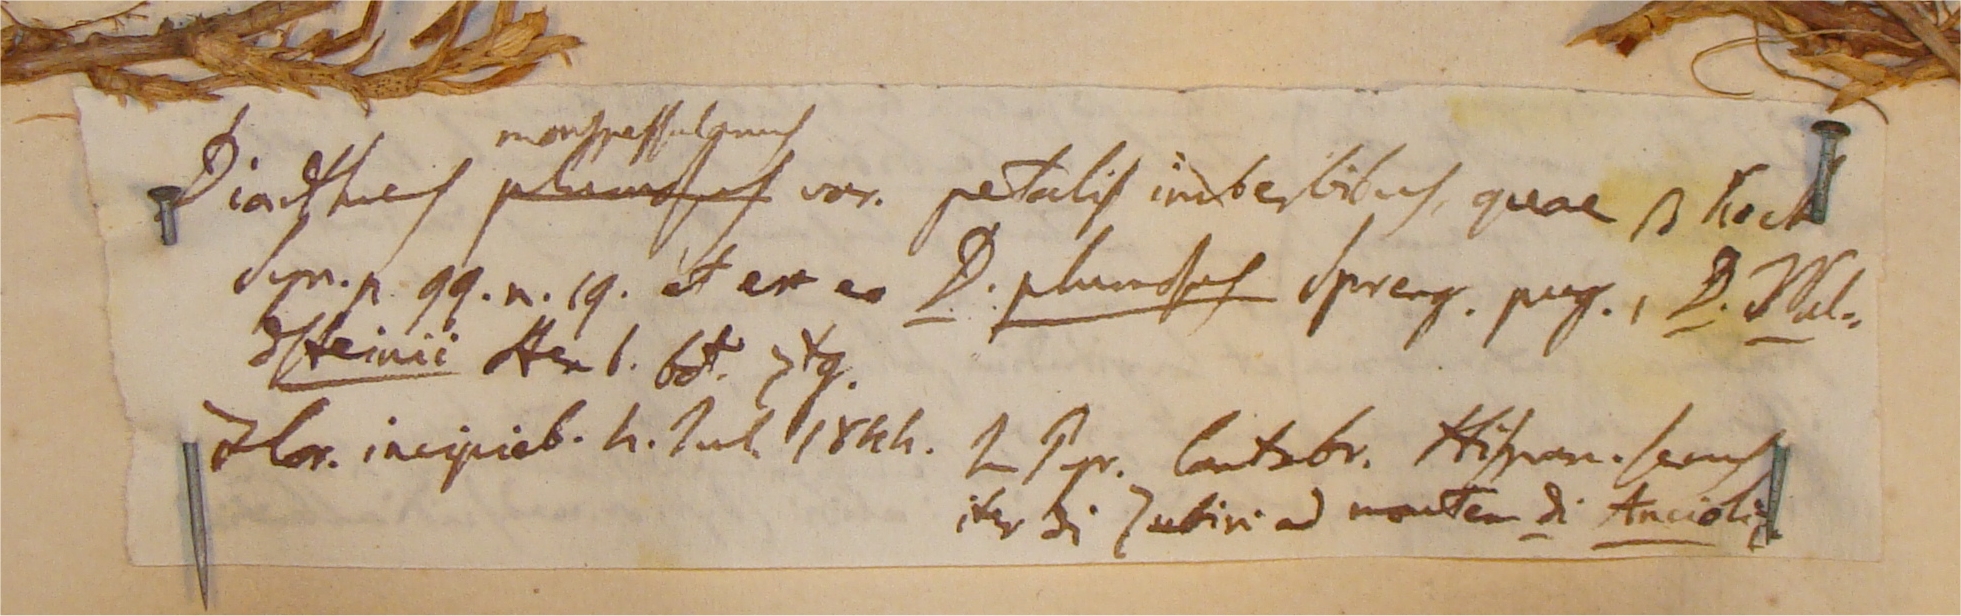 monspessulanus
Dianthus plumosus var. petalis imberbibus, quae β Koch
Syn. p. 99. n. 19. et ex eo D. plumosus Spreng. pug., D. Wal-
dsteinii Sternb. bot. Ztg.
Flor. incipieb. h. Jul. 1844. In Pyr. Cantabr. Hispan. secus
iter di Zubiri ad montem di Anciolis